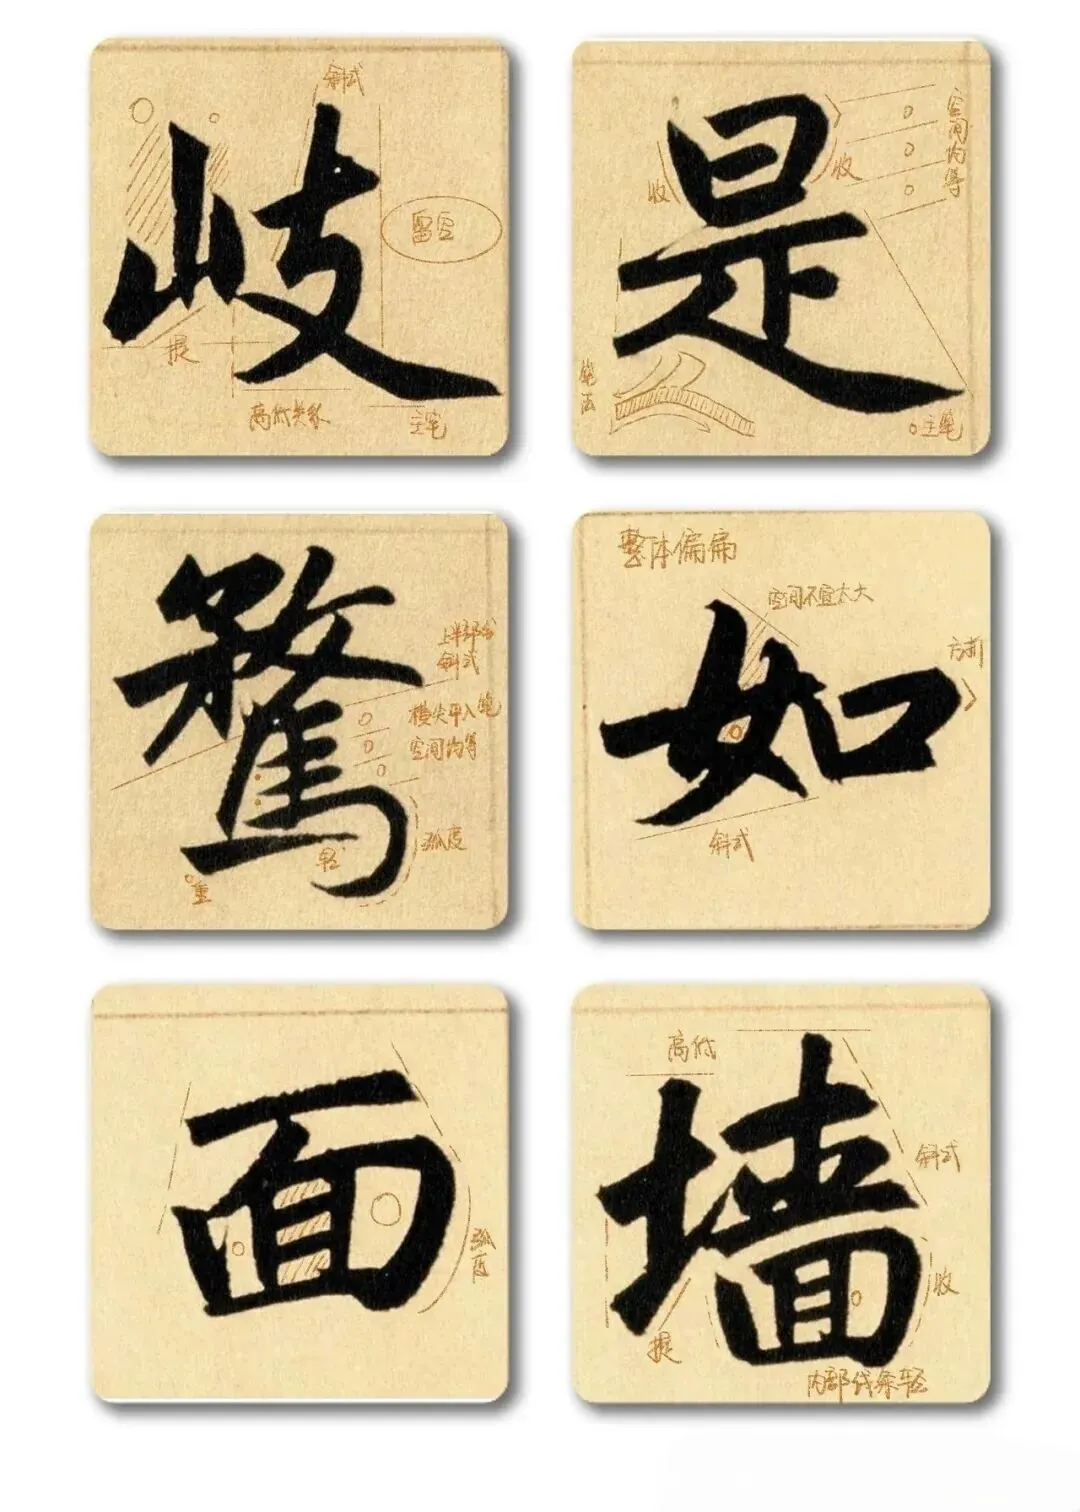 斜式
岐
留空
提
高低关系
主笔
是
收
收
空间均等
笔法
主笔
骛
上半部分
斜式
横尖平入笔
空间均等
弧度
轻
重
整体偏扁
空间不宜太大
方折
如
斜式
面
弧度
高低
墙
斜式
收
提
内部线条轻